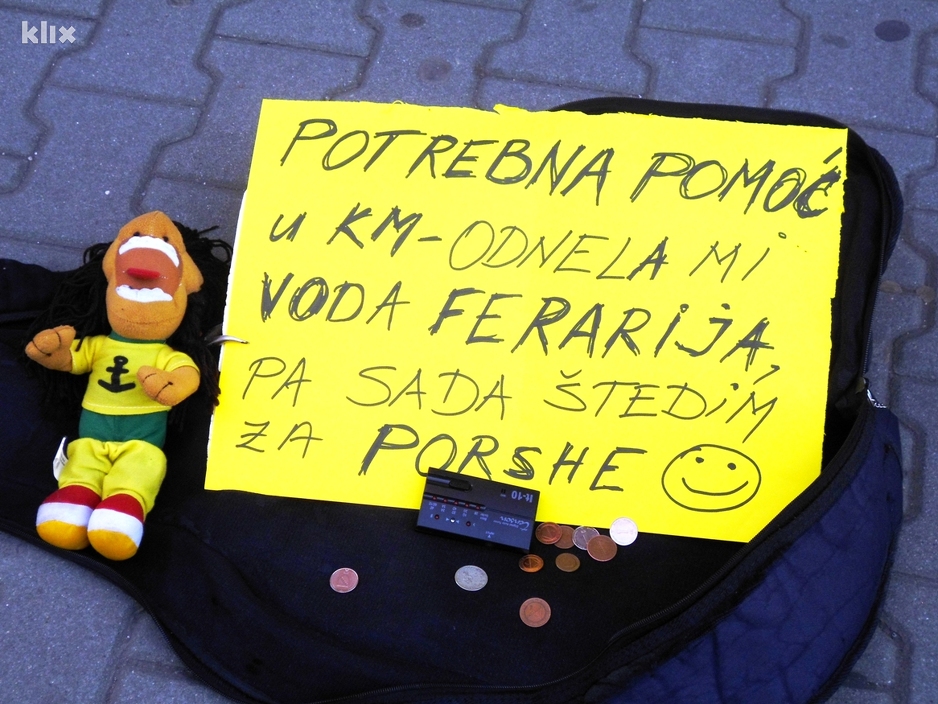 klix
POTREBNA POMOĆ
U KM-ODNELA MI
VODA FERARiJA,
PA SADA ŠTEDiM
ZA PORSHE
lt-10